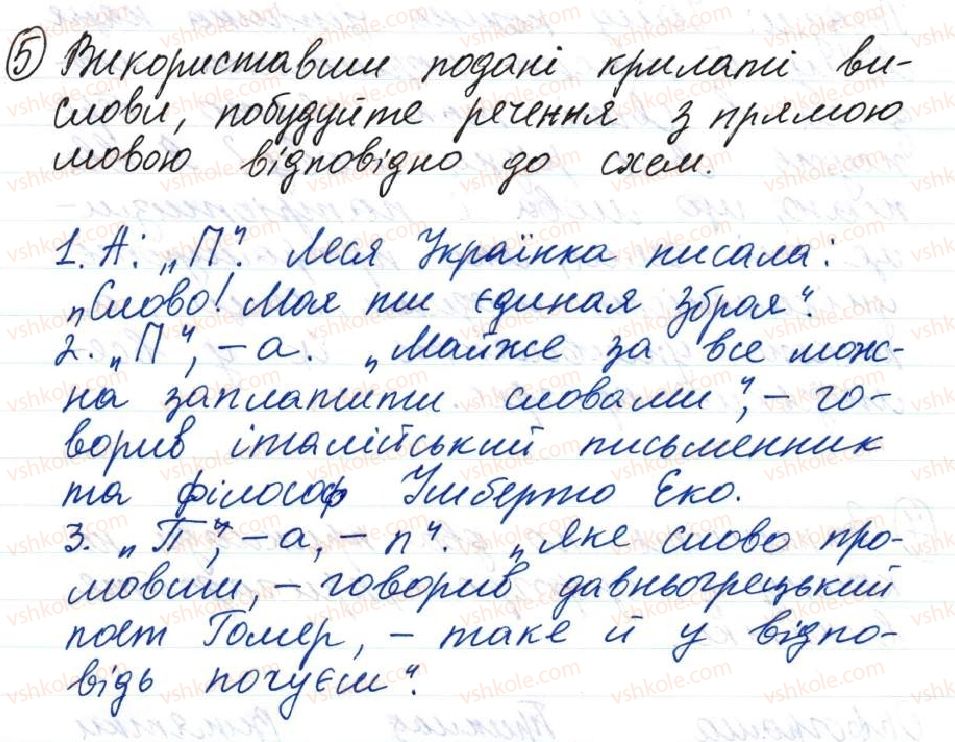 5 Використавши подані крилаті ви-
слови, побудуйте речення з прямою
мовою відповідно до схем.
1. А: „П“. Леся Українка писала:
„Слово! Моя ти єдиная зброя“.
2. „П“, – а. „Майже за все мож-
на заплатити словами“, – го-
ворив італійський письменник
та філософ Умберто Еко.
3. „П“, – а, – п“. „Яке слово про-
мовиш, – говорив давньогрецький
поет Гомер, – таке й у відпо-
відь почуєш“.